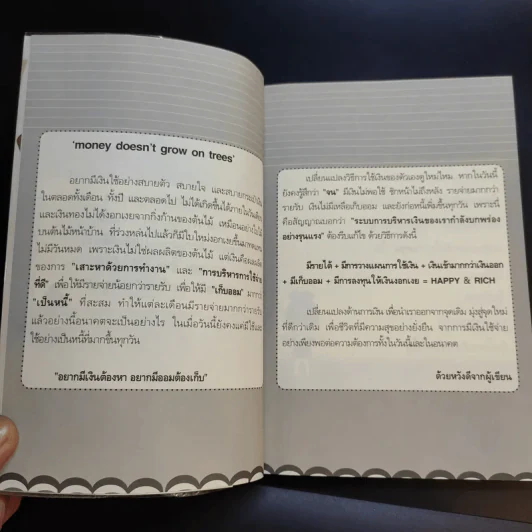 'money doesn't grow on trees'
อยากมีเงินใช้อย่างสบายตัว สบายใจ และสบายกระเป๋า
ในตลอดทั้งเดือน ทั้งปี และตลอดไป ไม่ได้เกิดขึ้นได้ภายในวันเดียว
และเงินทองไม่ได้งอกเงยจากกิ่งก้านของต้นไม้ เหมือนอย่างใบไม้
บนต้นไม้หน้าบ้าน ที่ร่วงหล่นไปแล้วก็มีใบใหม่งอกเงยขึ้นมาทดแทน
ไม่มีวันหมด เพราะเงินไม่ใช่ผลผลิตของต้นไม้ แต่เงินคือผลผลิต
ของการ "เสาะหาด้วยการทำงาน" และ "การบริหารการใช้จ่าย
ที่ดี" เพื่อให้มีรายจ่ายน้อยกว่ารายรับ เพื่อให้มี "เก็บออม" มากกว่า
"เป็นหนี้" ที่สะสม ทำให้แต่ละเดือนมีรายจ่ายมากกว่ารายรับ
แล้วอย่างนี้อนาคตจะเป็นอย่างไร ในเมื่อวันนี้ยังคงแค่มีใช้และ
ใช้อย่างเป็นหนี้ที่มากขึ้นทุกวัน
"อยากมีเงินต้องหา อยากมีออมต้องเก็บ"
เปลี่ยนแปลงวิธีการใช้เงินของตัวเองดูใหม่ไหม หากในวันนี้
ยังคงรู้สึกว่า "จน" มีเงินไม่พอใช้ ชักหน้าไม่ถึงหลัง รายจ่ายมากกว่า
รายรับ เงินไม่มีเหลือเก็บออม และยังก่อหนี้เพิ่มขึ้นทุกวัน เพราะนี่
คือสัญญาณบอกว่า "ระบบการบริหารเงินของเรากำลังบกพร่อง
อย่างรุนแรง" ต้องรีบแก้ไข ด้วยวิธีการดังนี้
มีรายได้ + มีการวางแผนการใช้เงิน + เงินเข้ามากกว่าเงินออก
+ มีเก็บออม + มีการลงทุนให้เงินงอกเงย = HAPPY & RICH
เปลี่ยนแปลงด้านการเงิน เพื่อนำเราออกจากจุดเดิม มุ่งสู่จุดใหม่
ที่ดีกว่าเดิม เพื่อชีวิตที่มีความสุขอย่างยั่งยืน จากการมีเงินใช้จ่าย
อย่างเพียงพอต่อความต้องการทั้งในวันนี้และในอนาคต
ด้วยหวังดีจากผู้เขียน